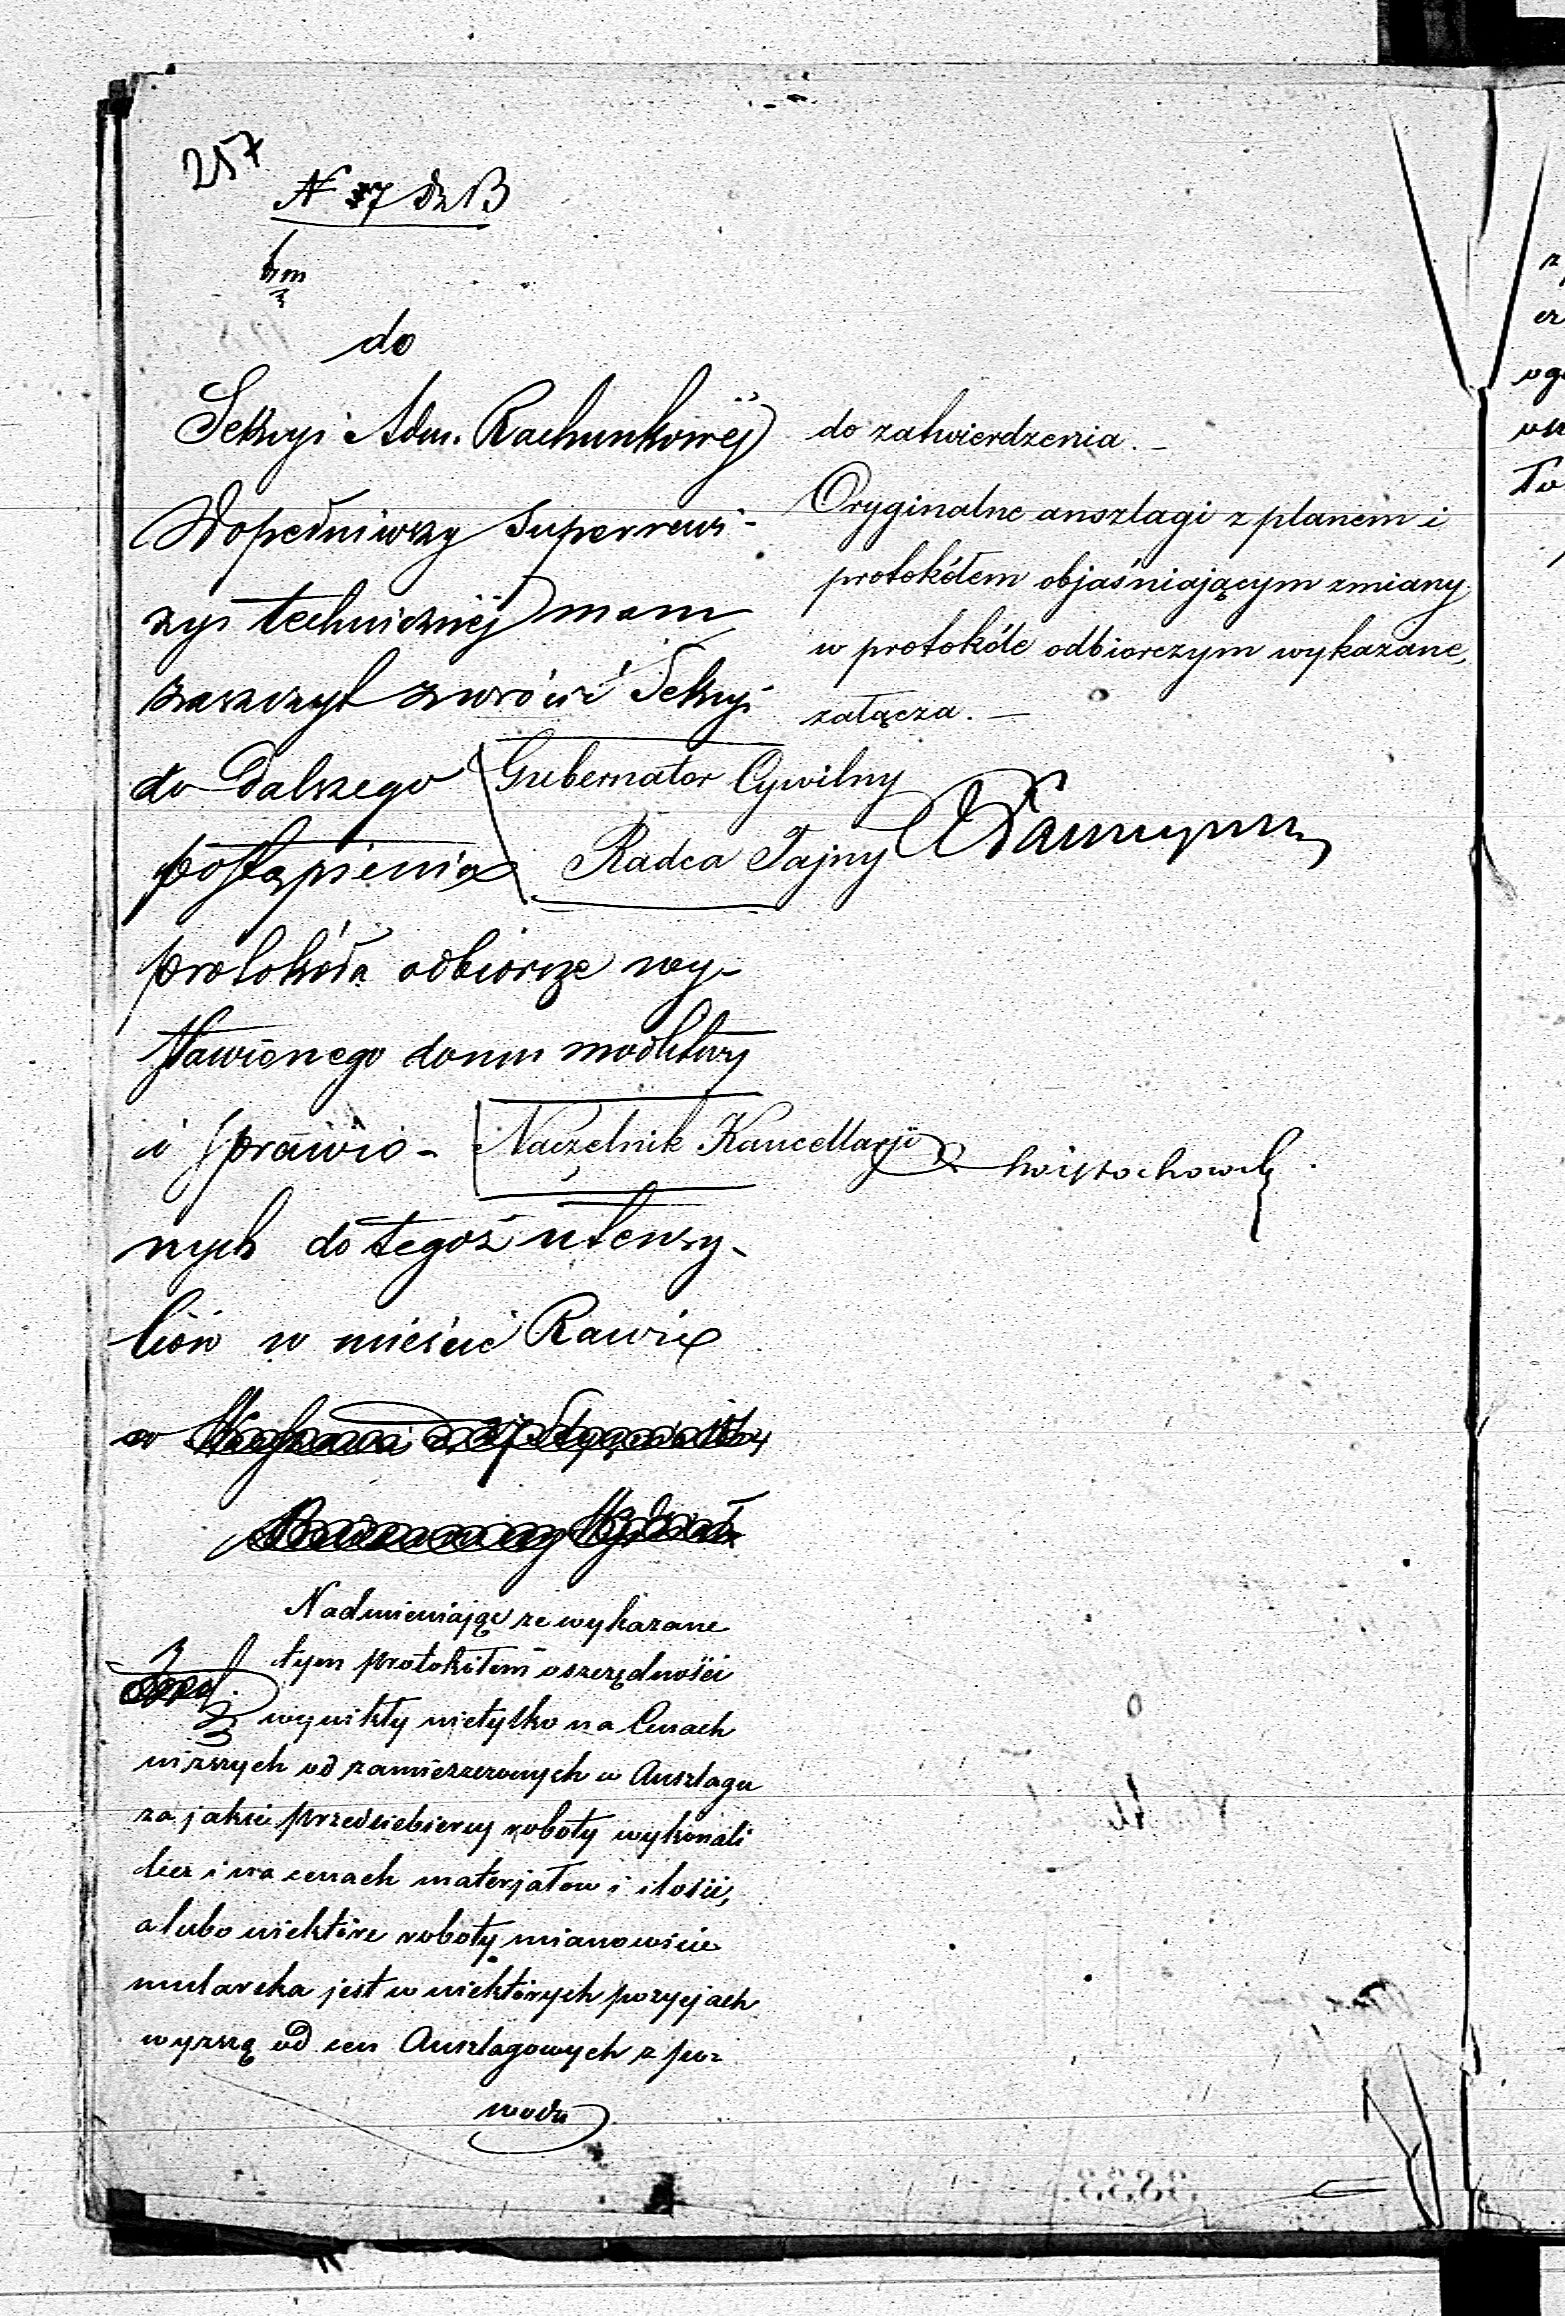 257
N 37 Dz B
do
Sekcyi Adm. Rachunkowéj
Dopełniwszy superrewi-
zyi technicznéj mam
zaszczyt zwrócić Sekcyi
do dalszego
postąpienia
protokóła odbiorcze wy-
stawionego domu modlitwy
i sprawio-
nych do tegoż utensy-
liów w mieście Rawie
w
Nadmieniając ze wykazane
tym protokółem oszczędności
wynikły nietylko na Cenach
niższych od zamieszczonych w Anszlagu
za jakie przedsiebiercy roboty wykonali
lecz i na cenach materjałów i ilości,
a lubo niektóre roboty mianowicie
mularska jest w niektórych pozycjach
wyzszą od cen Anszlagowych z po-
wodu
do zatwierdzenia. –
Oryginalne anszlagi z planem i
protokółem objaśniającym zmiany
w protokóle odbiorczym wykazane,
załącza. –
Gubernator Cywilny
Radca Tajny
Naczelnik Kancellarji